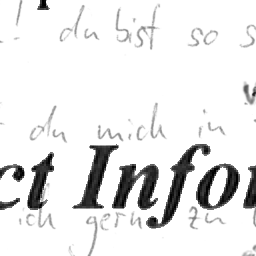 ! du bist so s
du mich in
ct Infor
ich gern zu